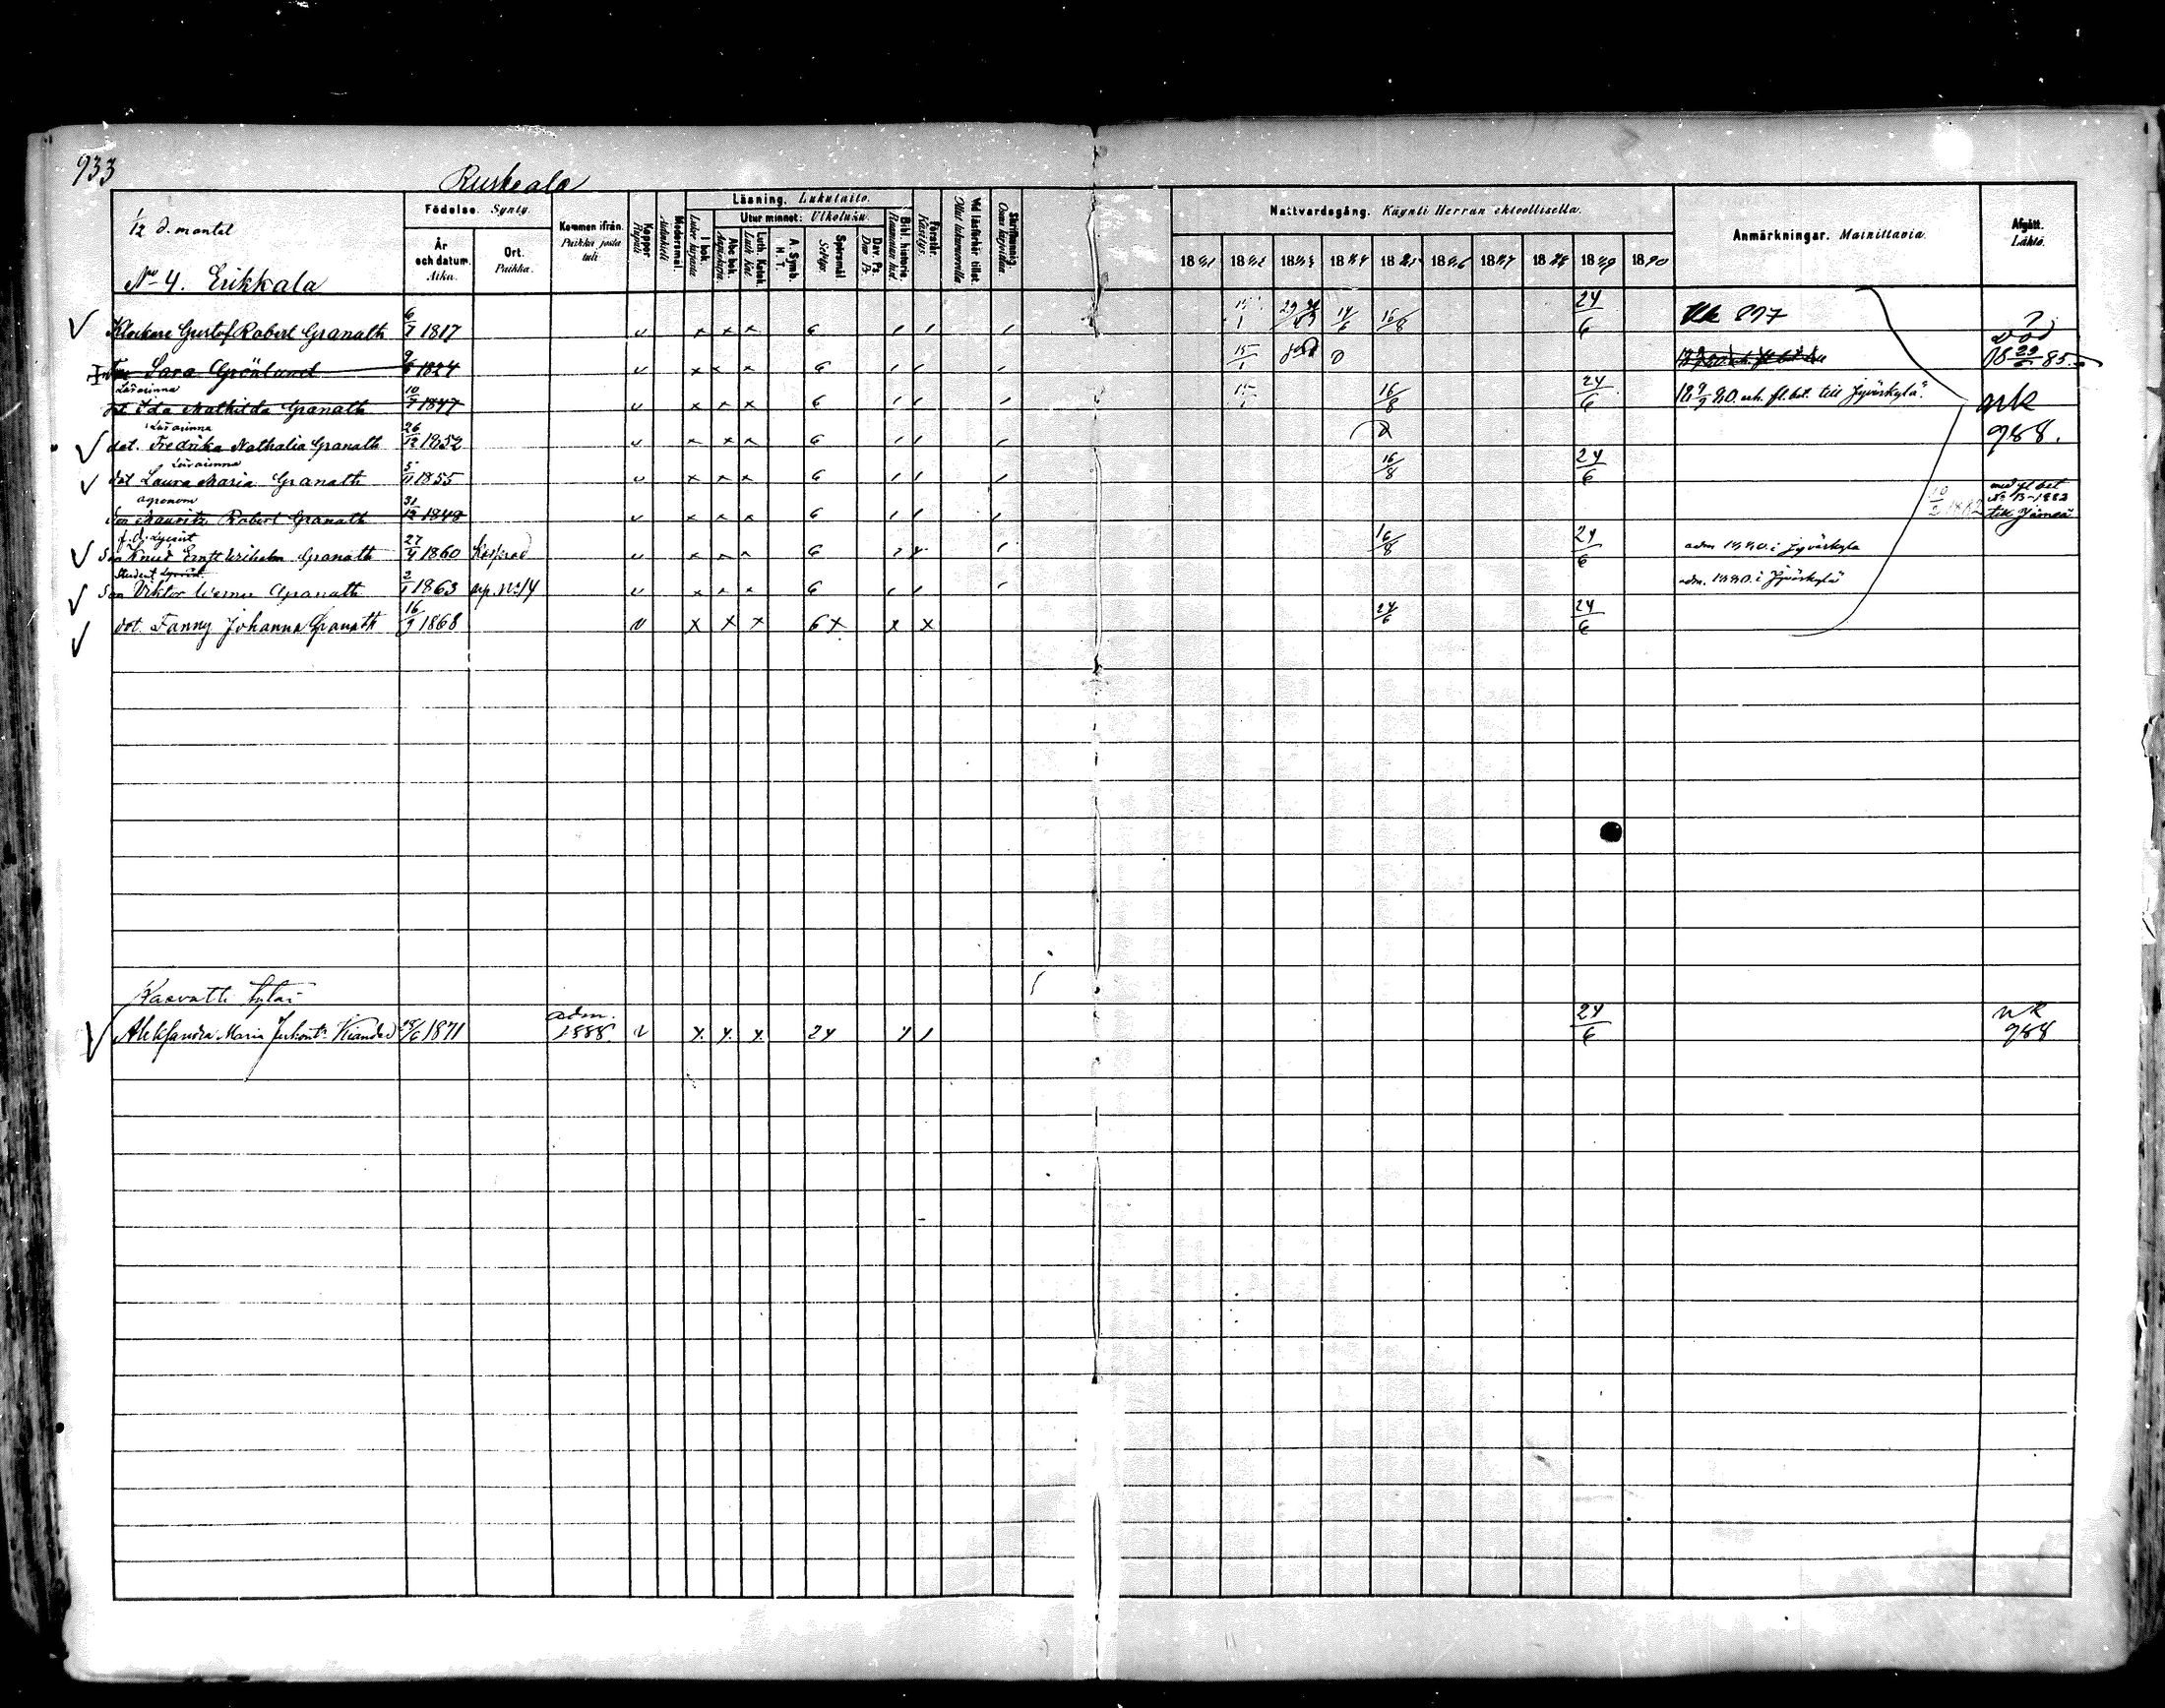 933
Ruskeala
1/2 d. mantel
No 4. Erikkala
Födelse. Synty.
År och datum. Aika.
Ort. Paikka.
Kommen ifrån. Paikka josta tuli.
Koppor. Rupuli
Modersmål. Äidinkieli
Läsning. Lukutaito.
I bok. Luku kirjasta
Utur minnet: Ulkoluku.
Abc bok. Aapiskirja.
Luth. Katek. Luth. Kat.
A. Symb. H. T.
Spörsmål. Selitys.
Dav. Ps. Dav. Ps.
Bibl. historia. Raamatun hist.
Förstår. Käsitys.
Vid läsförhör tillst. Ollut lukuvuorolla
Skrifkunnig. Osaa kirjoittaa.
Nattvardsgång. Käynti Herran ehtoollisella.
1881 1882 1883 1884 1885 1886 1887 1888 1889 1890
Anmärkningar. Mainittavia.
Afgått. Lähtö.
Klockare Gustof Robert Granath 6/7 1817 6 15/1 14/6 16/8 24/6 897
Sara Grönlund 1824 6 15/1 död 29 85
Lärarinna
dot Ida Mathilda Granath 10/7 1847 6 15/1 16/8 24/6 18 9/9 80. erh. fl. bet. till Jyväskylä. nk
Lärarinna
dot. Fredrika Nathalia Granath 26/12 1852 6 988.
Lärarinna
dot Laura Maria Granath 5/11 1855 6 16/8 24/6
agronom
Son Mauritz Robert Granath 31/12 1848 6 10/2 1882 med fl. bet No 13-1882 till Jämsä
f. d. Lyceist
Son Knut Ernst Wilhelm Granath 27/4 1860 6 16/8 24/6 adm 1880. i Jyväskylä
Student Lyceist
Son Viktor Werner Granath 2/1 1863 No 14 6 adm. 1880. i Jyväskylä
dot. Fanny Johanna Granath 16/9 1868 6 x 24/6 24/6
Kasvatti tytär
Aleksandra Maria Kiander 1871 adm. 1888. 24/6 nk 988